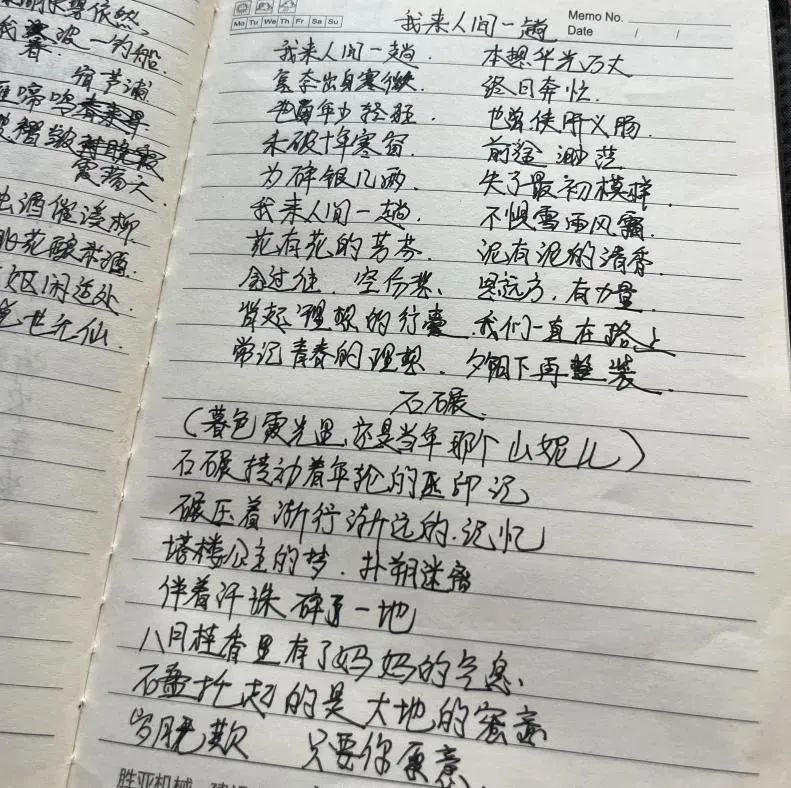 依然
波一灼船
宿芦浦
啼鸣
酒催溪柳
花酿
闲适处
世无仙
Memo No.
Date / /
Mo Tu We Th Fr Sa Su
我来人间一趟
我来人间一趟. 本想华光万丈
奈出身寒微 终日奔忙.
年少轻狂 也曾侠肝义肠.
未破十年寒窗. 前途渺茫
为碎银几两 失了最初模样
我来人间一趟. 不惧雪雨风霜.
花有花的芳芬. 泥有泥的清香.
念过往. 空伤悲、 思远方, 有力量.
背起理想的行囊 我们一直在路上
常记青春的理想. 夕阳下再整装.
石碾.
(暮色霞光里, 还是当年那个山妮儿)
石碾转动着年轮的印记
碾压着渐行渐远的记忆
塔楼公主的梦. 扑朔迷离
伴着汗珠碎了一地
八月桂香里有了妈妈的气息、
石托起的是大地的蜜意
只要你愿意.
胜亚机械